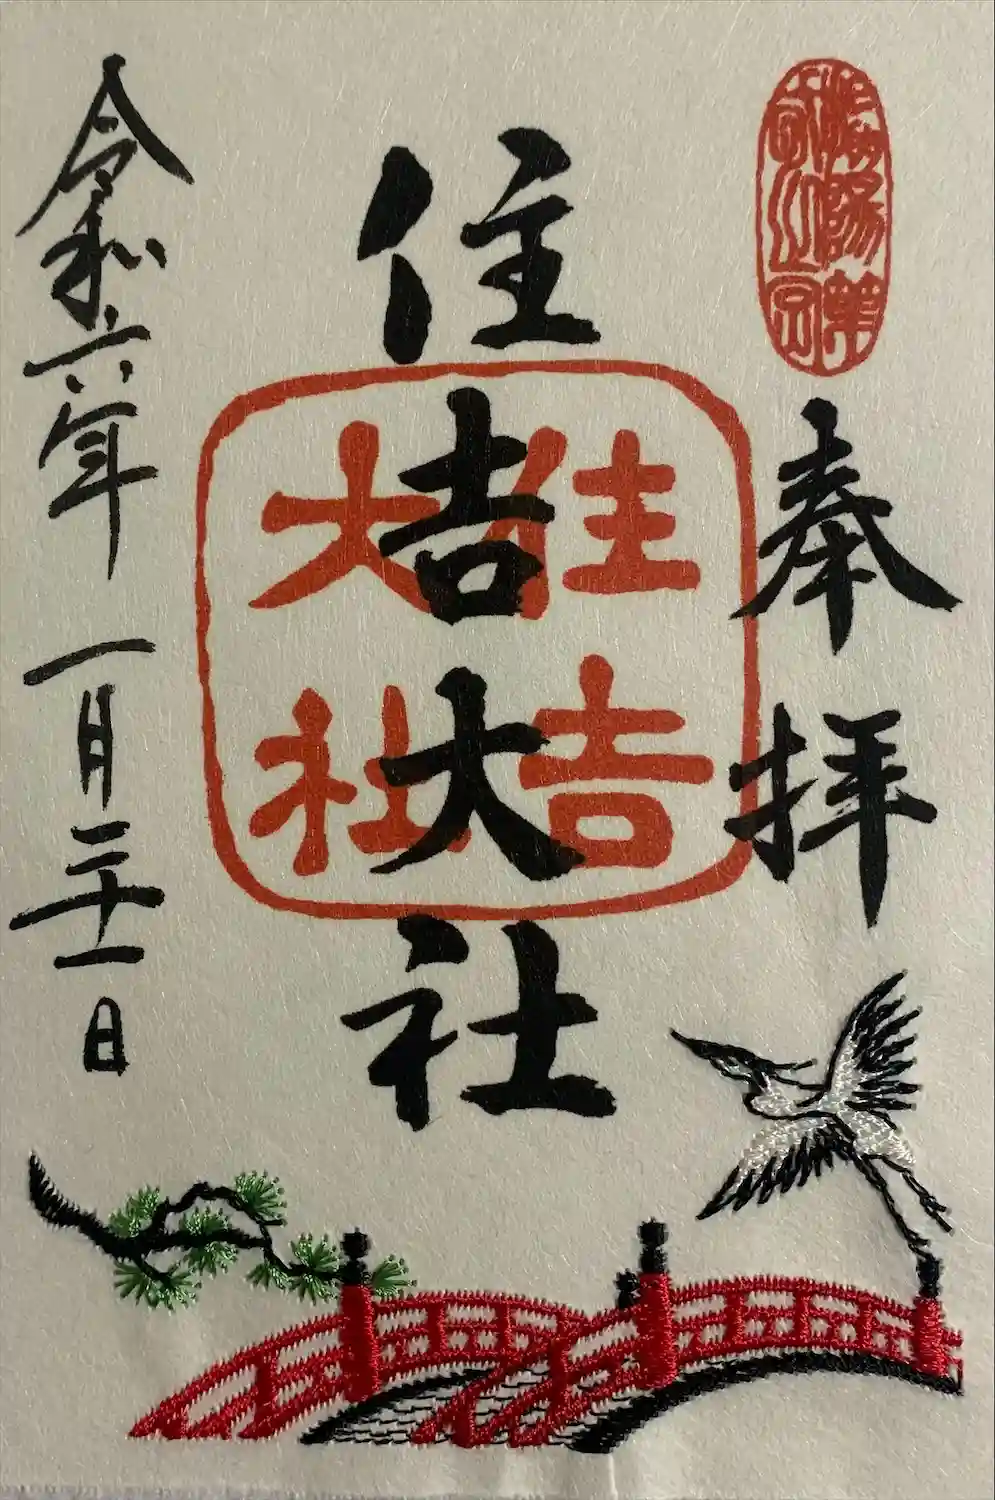 奉拝
住吉大社
住吉
大社
令和六年一月二十一日